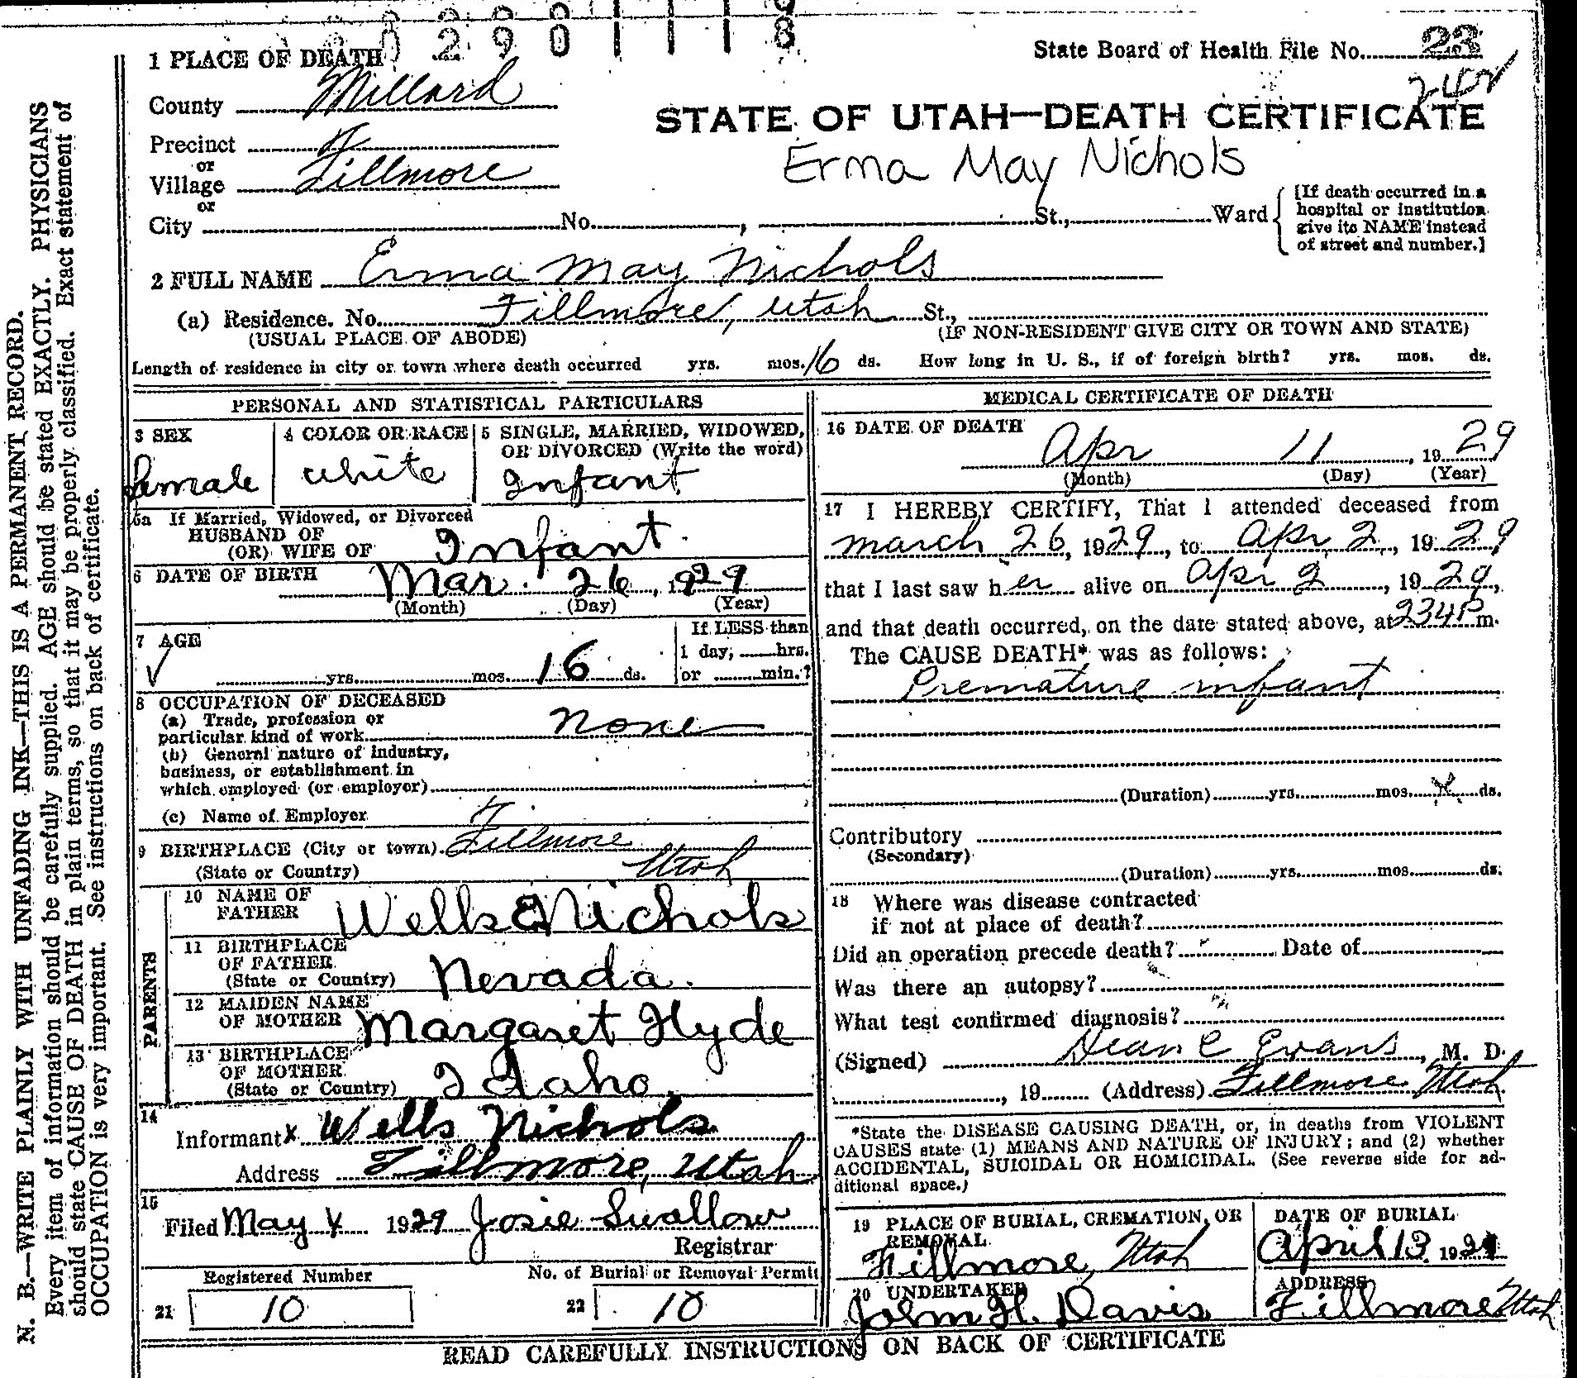 0290111 8
1 PLACE OF DEATH
State Board of Health File No. 23
242
County Millard
STATE OF UTAH—DEATH CERTIFICATE
Precinct
or
Village Fillmore
Erma May Nichols
or
City No. , St., Ward
[If death occurred in a
hospital or institution
give its NAME instead
of street and number.]
2 FULL NAME Erma May Nichols
(a) Residence. No. Fillmore, Utah St.,
(USUAL PLACE OF ABODE) (IF NON-RESIDENT GIVE CITY OR TOWN AND STATE)
Length of residence in city or town where death occurred yrs. mos. 16 ds. How long in U. S., if of foreign birth? yrs. mos. ds.
PERSONAL AND STATISTICAL PARTICULARS
3 SEX
female
4 COLOR OR RACE
white
5 SINGLE, MARRIED, WIDOWED,
OR DIVORCED (Write the word)
Infant
5a If Married, Widowed, or Divorced
HUSBAND OF
(OR) WIFE OF Infant.
6 DATE OF BIRTH Mar. 26, 1929
(Month) (Day) (Year)
7 AGE
yrs. mos. 16 ds.
If LESS than
1 day, hrs.
or min.?
8 OCCUPATION OF DECEASED
(a) Trade, profession or
particular kind of work none
(b) General nature of industry,
business, or establishment in
which employed (or employer)
(c) Name of Employer
9 BIRTHPLACE (City or town) Fillmore
(State or Country) Utah
PARENTS
10 NAME OF
FATHER Wells E Nichols
11 BIRTHPLACE
OF FATHER
(State or Country) Nevada.
12 MAIDEN NAME
OF MOTHER Margaret Hyde
13 BIRTHPLACE
OF MOTHER
(State or Country) Idaho
14
Informant x Wells Nichols
Address Fillmore, Utah
15
Filed May 4 1929 Josie Swallow
Registrar
Registered Number
21 10
No. of Burial or Removal Permit
22 10
MEDICAL CERTIFICATE OF DEATH
16 DATE OF DEATH
Apr 11, 1929
(Month) (Day) (Year)
17 I HEREBY CERTIFY, That I attended deceased from
march 26, 1929, to Apr 2, 1929
that I last saw her alive on Apr 2, 1929,
and that death occurred, on the date stated above, at 234 P m.
The CAUSE DEATH* was as follows:
Premature infant
(Duration) yrs. mos. ds.
Contributory
(Secondary)
(Duration) yrs. mos. ds.
18 Where was disease contracted
if not at place of death?
Did an operation precede death? Date of
Was there an autopsy?
What test confirmed diagnosis?
(Signed) Dean C Evans, M. D.
, 19 (Address) Fillmore Utah
*State the DISEASE CAUSING DEATH, or, in deaths from VIOLENT
CAUSES state (1) MEANS AND NATURE OF INJURY; and (2) whether
ACCIDENTAL, SUICIDAL OR HOMICIDAL. (See reverse side for ad-
ditional space.)
19 PLACE OF BURIAL, CREMATION, OR
REMOVAL
Fillmore, Utah
DATE OF BURIAL
April 13 1929
20 UNDERTAKER
John H. Davis
ADDRESS
Fillmore Utah
READ CAREFULLY INSTRUCTIONS ON BACK OF CERTIFICATE
N. B.—WRITE PLAINLY WITH UNFADING INK—THIS IS A PERMANENT RECORD.
Every item of information should be carefully supplied. AGE should be stated EXACTLY. PHYSICIANS
should state CAUSE OF DEATH in plain terms, so that it may be properly classified. Exact statement of
OCCUPATION is very important. See instructions on back of certificate.